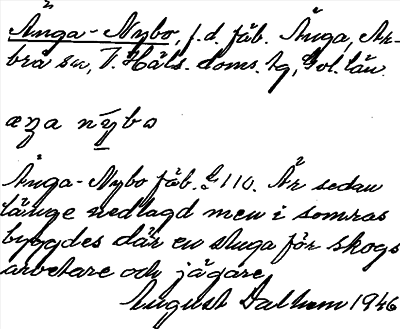 Änga-Nybo, f.d. fäb. Änga, Ar-
brå sn, V. Häls. doms. hg, Gvl. län.
æŋa nỳbo
Änga-Nybo fäb. G 110. Är sedan
länge nedlagd men i somras
byggdes där en stuga för skogs
arbetare och jägare
August Dallum 1946